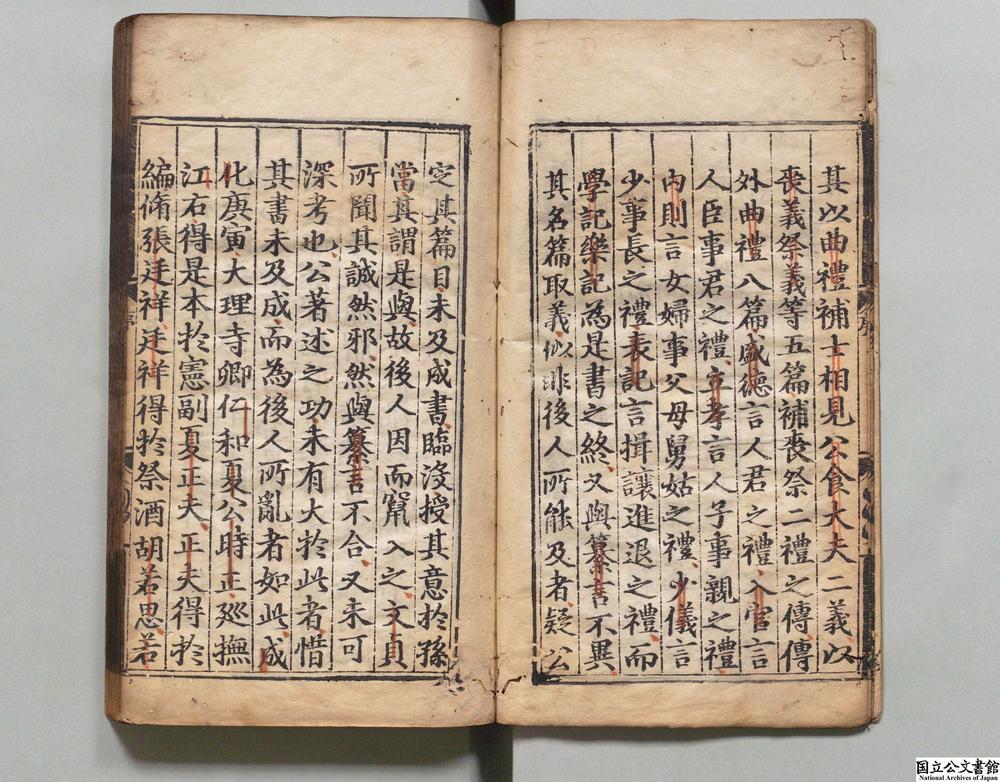 其以曲禮補士相見公食大夫二義以
喪義祭義等五篇補喪祭二禮之傳傳
外曲禮八篇盛德言人君之禮入官言
人臣事君之禮立孝言人子事親之禮
內則言女婦事父母舅姑之禮少儀言
少事長之禮表記言揖讓進退之禮而
學記樂記為是書之終又與纂言不異
其名篇取義似非後人所能及者疑公
定其篇目未及成書臨沒授其意於孫
當其謂是與故後人因而竄入之文貞
所聞其誠然邪然與纂言不合又未可
深考也公著述之功未有大於此者惜
其書未及成而為後人所亂者如此成
化庚寅大理寺卿仁和夏公時正廵撫
江右得是本於憲副夏正夫正夫得於
編脩張廷祥廷祥得於祭酒胡若思若
国立公文書館
National Archives of Japan